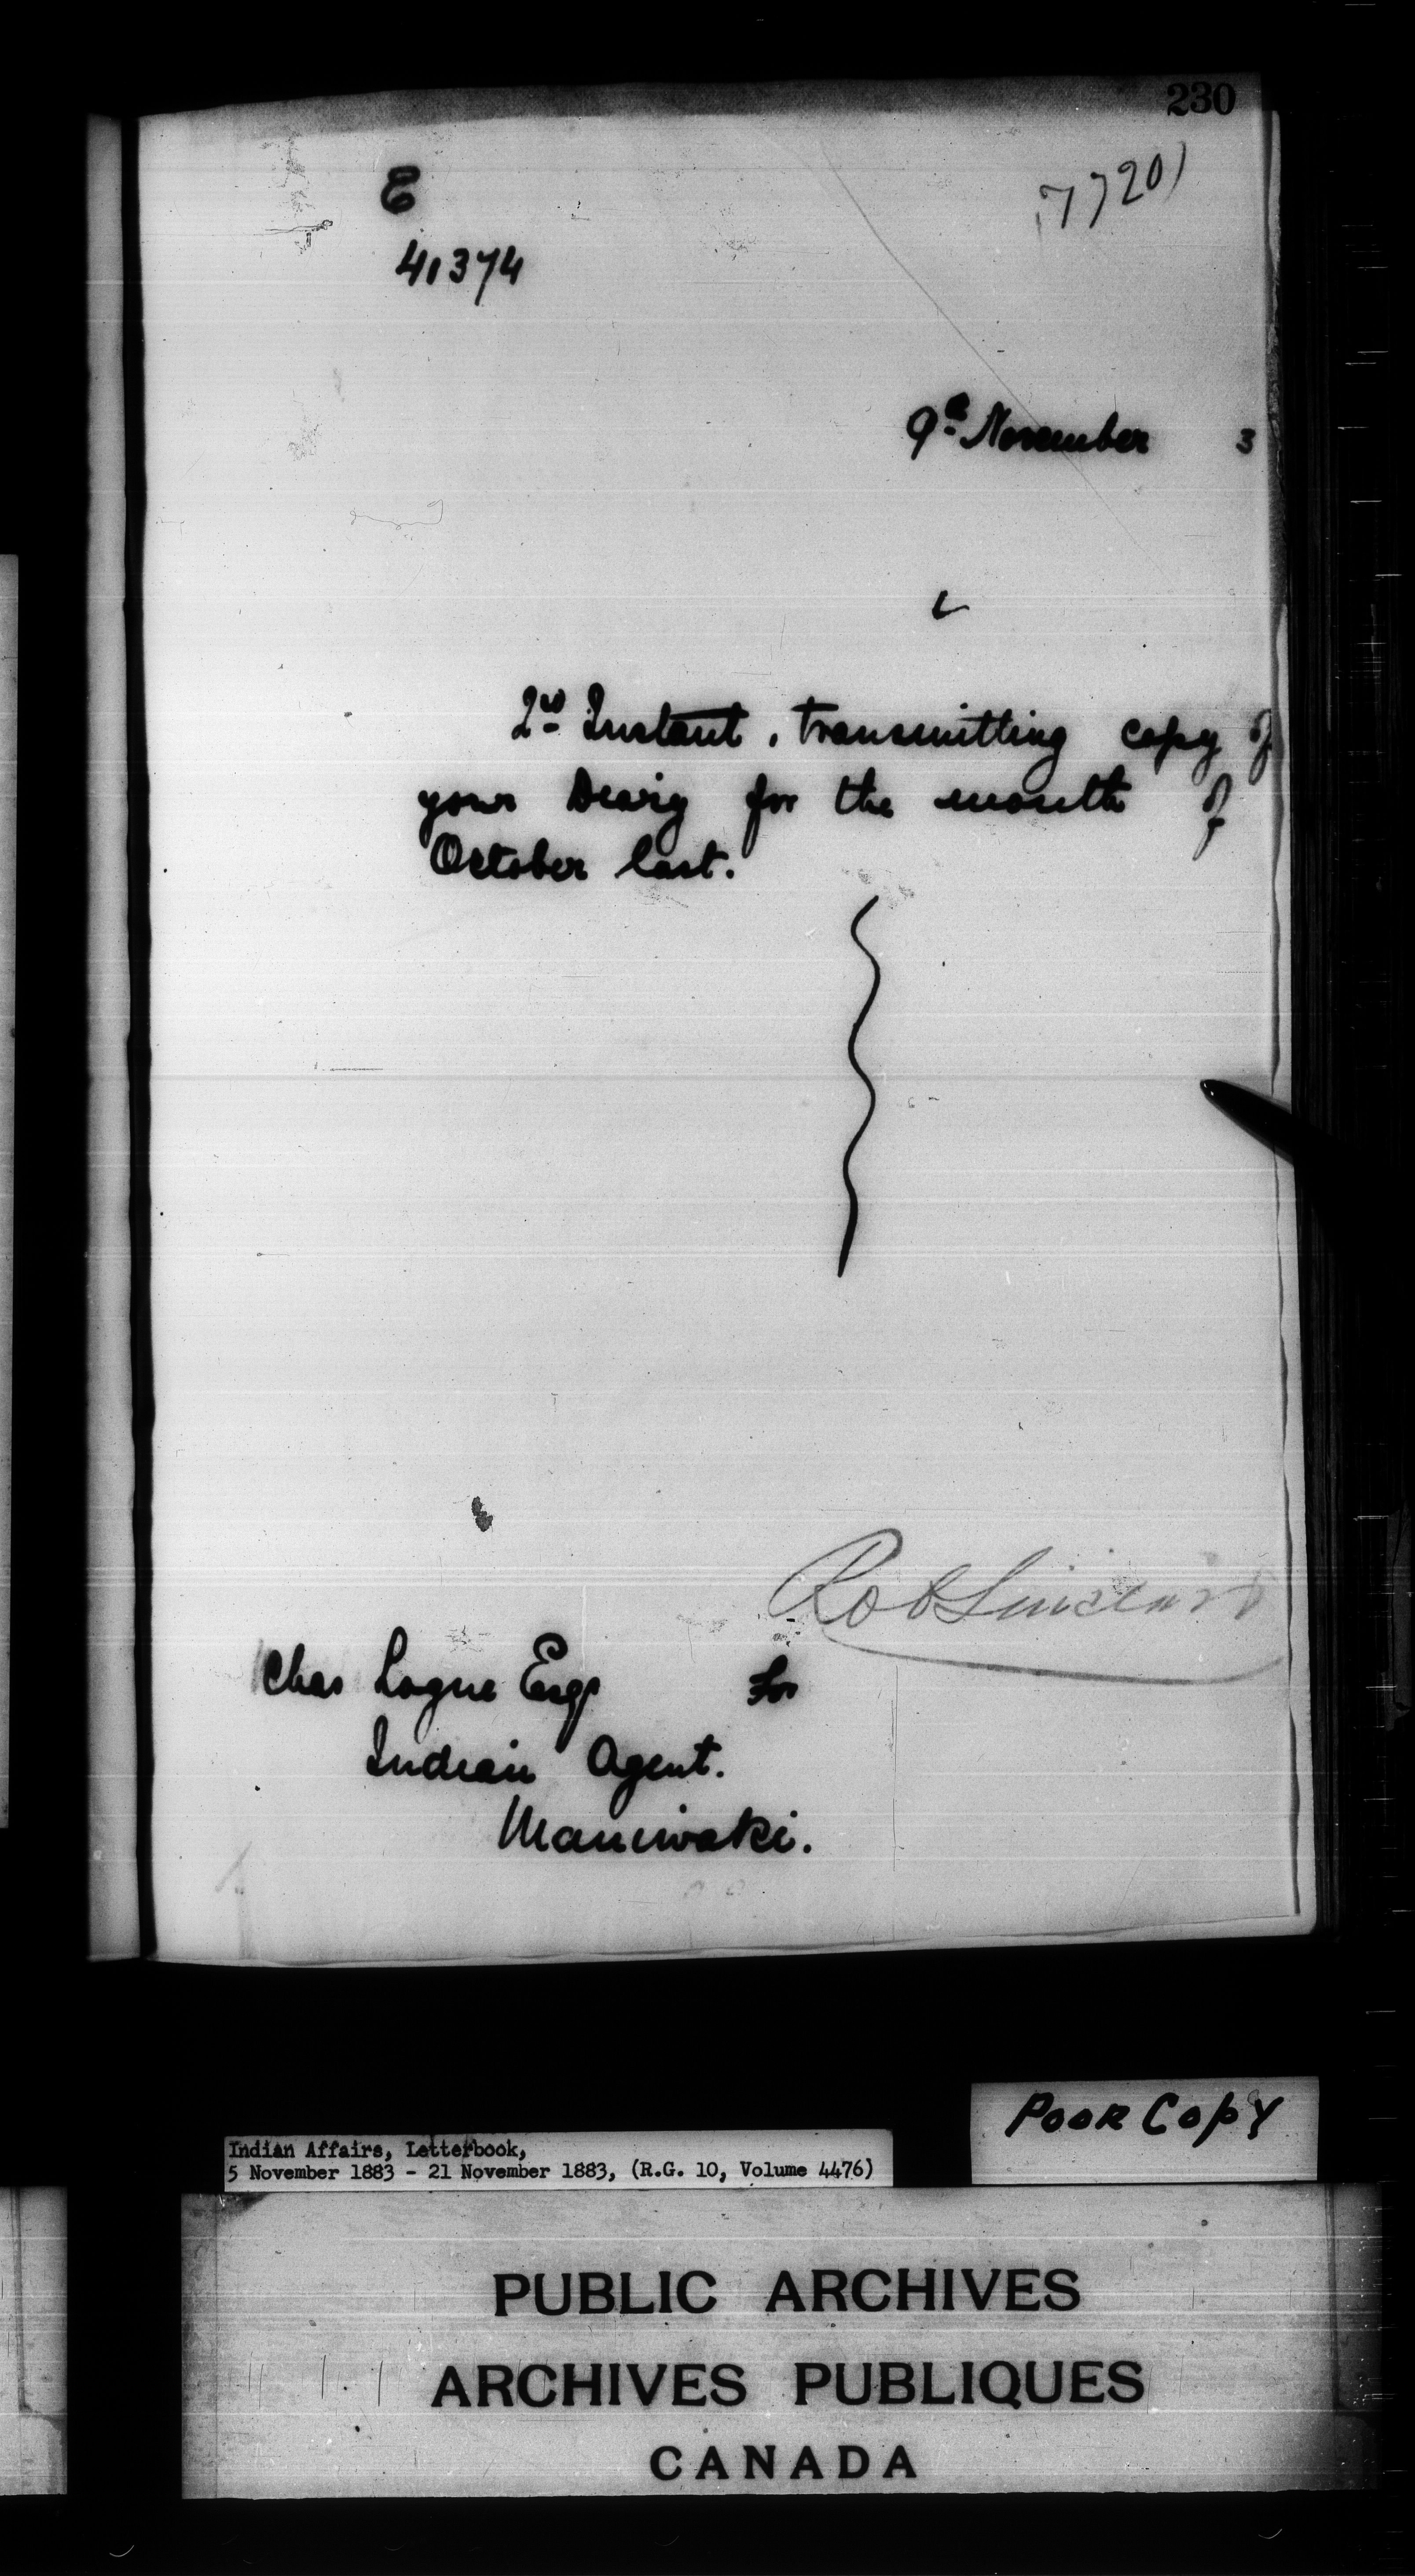 230
E
41374
9th November 3
2nd Instant, transmitting copy of
your Diary for the month of
October last.
Rob Sinclair
Chas Logue Esqr for
Indian Agent.
Maniwaki.
Poor Copy
Indian Affairs, Letterbook,
5 November 1883 - 21 November 1883, (R.G. 10, Volume 4476)
PUBLIC ARCHIVES
ARCHIVES PUBLIQUES
CANADA